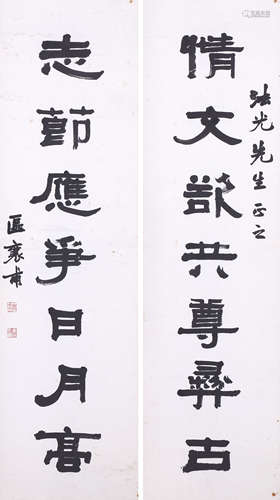 法光先生正之
情文欲共尊彝古
志節應爭日月高
區襄甫